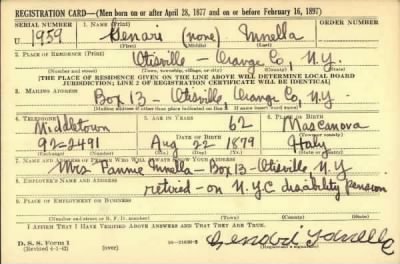 REGISTRATION CARD—(Men born on or after April 28, 1877 and on or before February 16, 1897)
SERIAL NUMBER
U 1959
1. NAME (Print)
Genari (none) Innella
(First) (Middle) (Last)
2. PLACE OF RESIDENCE (Print)
Otisville - Orange Co, N.Y.
(Number and street) (Town, township, village, or city) (County) (State)
[THE PLACE OF RESIDENCE GIVEN ON THE LINE ABOVE WILL DETERMINE LOCAL BOARD
JURISDICTION; LINE 2 OF REGISTRATION CERTIFICATE WILL BE IDENTICAL]
3. MAILING ADDRESS
Box 13 - Otisville Orange Co, N.Y.
[Mailing address if other than place indicated on line 2. If same insert word same]
4. TELEPHONE
Middletown
92-2491
(Exchange) (Number)
5. AGE IN YEARS
62
DATE OF BIRTH
Aug 22 1879
(Mo.) (Day) (Yr.)
6. PLACE OF BIRTH
Mascanova
(Town or county)
Italy
(State or country)
7. NAME AND ADDRESS OF PERSON WHO WILL ALWAYS KNOW YOUR ADDRESS
Mrs Fannie Innella - Box 13 - Otisville, N.Y.
8. EMPLOYER'S NAME AND ADDRESS
retired - on N.Y.C disability pension
9. PLACE OF EMPLOYMENT OR BUSINESS
(Number and street or R. F. D. number) (Town) (County) (State)
I AFFIRM THAT I HAVE VERIFIED ABOVE ANSWERS AND THAT THEY ARE TRUE.
D. S. S. Form 1
(Revised 4-1-42) (over)
(Registrant's signature)